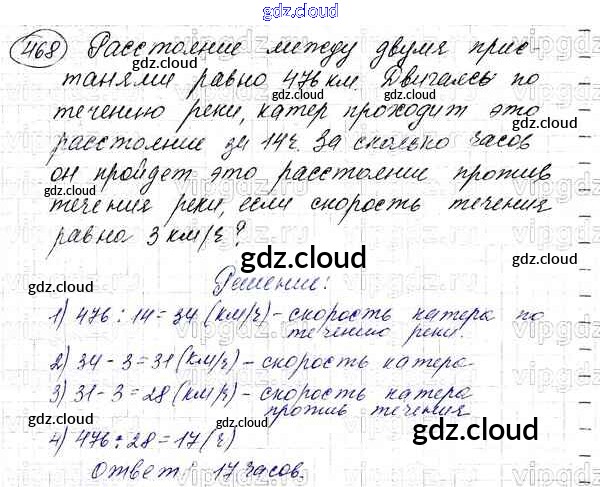 gdz.cloud
468 Расстояние между двумя прис-
танями равно 476 км. Двигаясь по
течению реки, катер проходит это
расстояние за 14ч. За сколько часов
он пройдет это расстоянии против
течения реки, если скорость течения
равна 3 км/ч?
Решение:
1) 476 : 14 = 34 (км/ч) - скорость катера по
течению реки.
2) 34 - 3 = 31 (км/ч) - скорость катера.
3) 31 - 3 = 28 (км/ч) - скорость катера
против течения
4) 476 : 28 = 17 (ч)
Ответ: 17 часов.
gdz.cloud